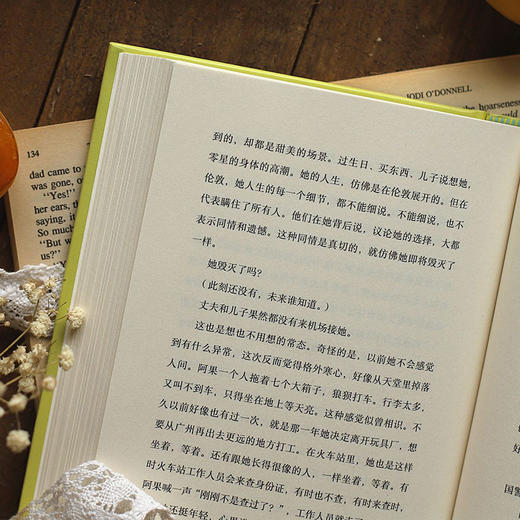 JODI O'DONNELL
the hoarseness
134
dad came to
was gone, o
"Yes!"
her ears, the
saying, it
So much
"But w
us?"
到的，却都是甜美的场景。过生日、买东西、儿子说想她，
零星的身体的高潮。她的人生，仿佛是在伦敦展开的。但在
伦敦，她人生的每一个细节，都不能细说。不能细说，也不
代表瞒住了所有人。他们在她背后说，议论她的选择，大都
表示同情和遗憾。这种同情是真切的，就仿佛她即将毁灭了
一样。
她毁灭了吗？
（此刻还没有，未来谁知道。）
丈夫和儿子果然都没有来机场接她。
这也是想也不用想的常态。奇怪的是，以前她不会感觉
到有什么异常，这次反而觉得格外寒心，好像从天堂里掉落
人间。阿果一个人拖着七个大箱子，狼狈打车。行李太多，
又叫不到车，只得坐在地上等天亮。这种感觉似曾相识。不
久以前好像也有过一次，就是那一年她决定离开玩具厂，想
要从广州再出去更远的地方打工。在火车站里，她也是这样
坐着，等着。还有跟她长得很像的人，一样坐着，等着。有
时火车站工作人员会来查身份证，有时也不查，有时来查时，
阿果喊一声"刚刚不是查过了？"，工作人员就走了
还挺年轻，心里